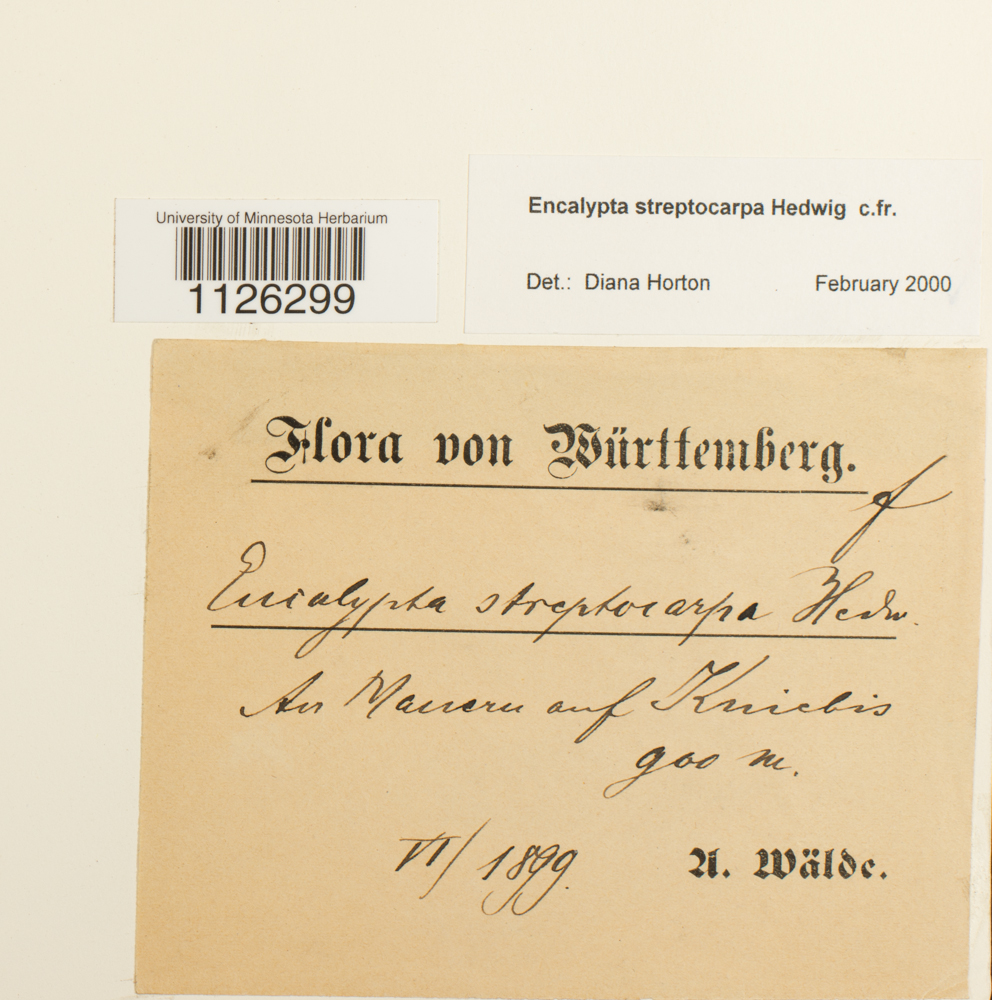 University of Minnesota Herbarium
1126299
Encalypta streptocarpa Hedwig c.fr.
Det.: Diana Horton February 2000
Flora von Württemberg.
f
Encalypta streptocarpa Hedw.
An Mauern auf Kniebis
900 m.
VI/1899. A. Wälde.